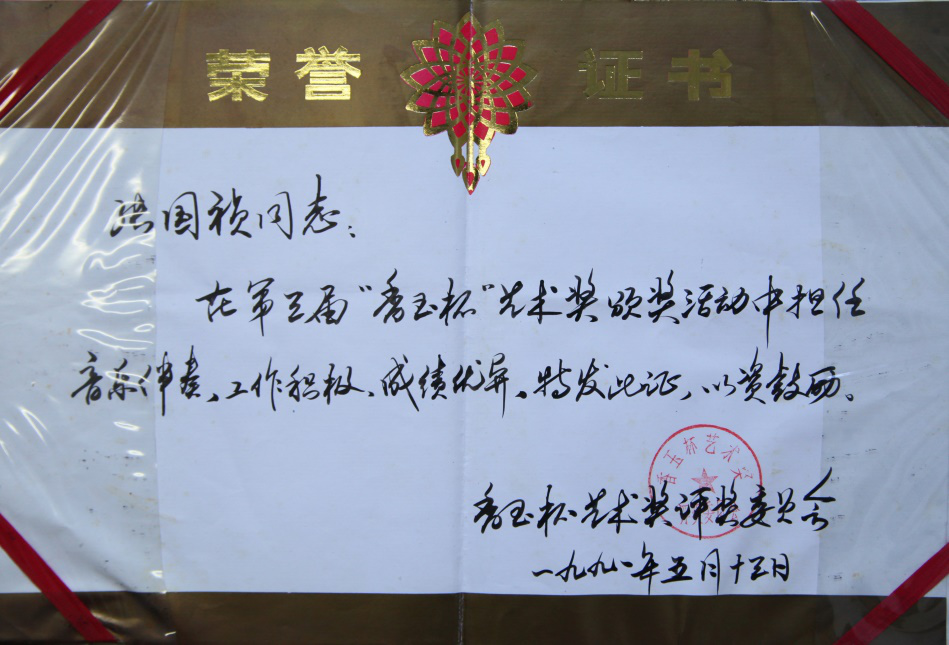 荣誉证书
国祯同志：
在第三届“香玉杯”艺术奖颁奖活动中担任
音乐伴奏，工作积极、成绩优异，特发此证，以资鼓励。
香玉杯艺术奖
香玉杯艺术奖评奖委员会
一九九一年五月十三日